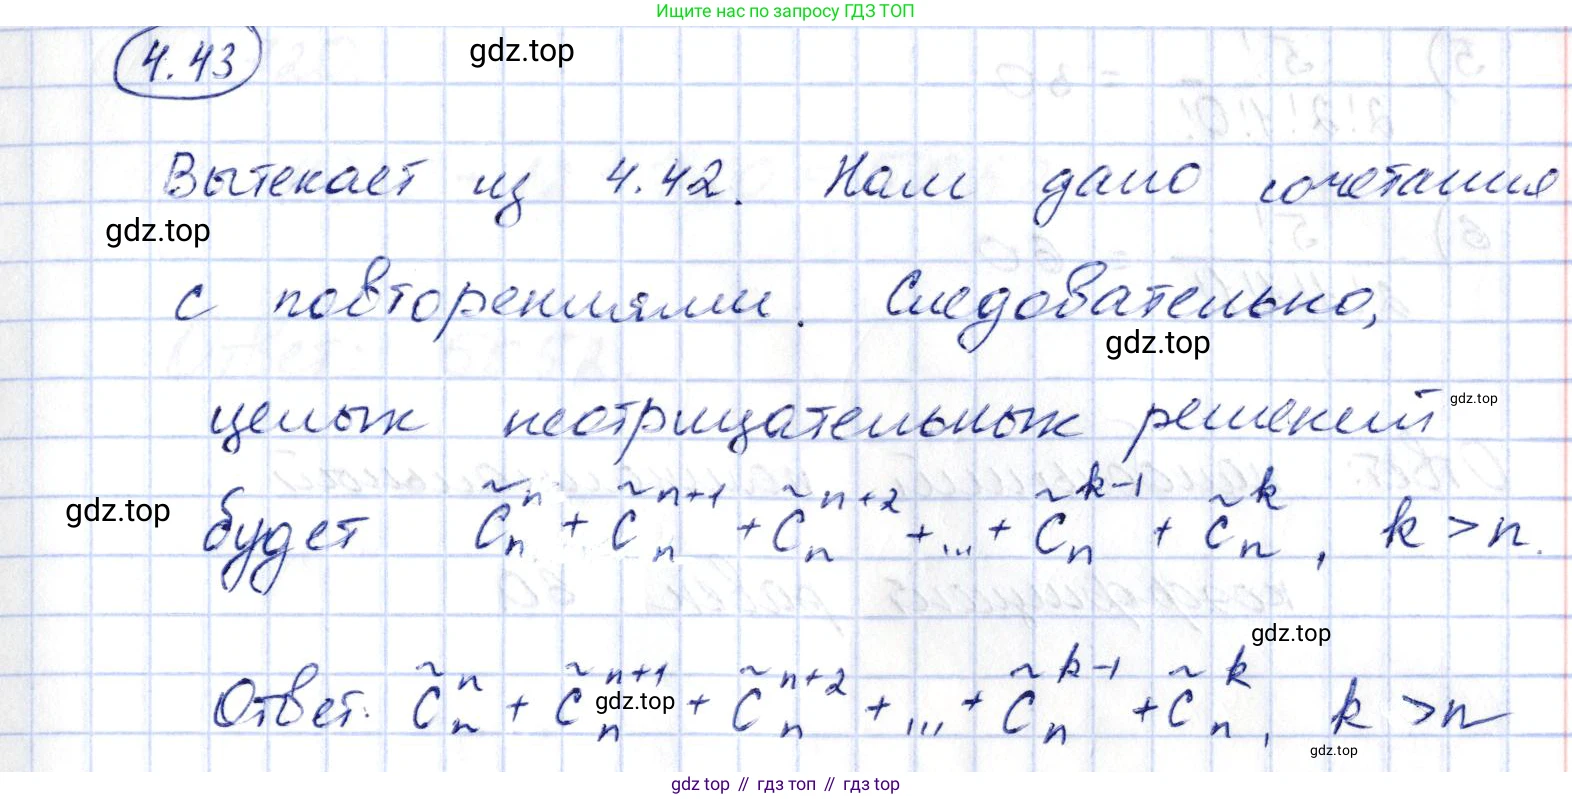 Ищите нас по запросу ГДЗ ТОП
4.43
gdz.top
Вытекает из 4.42. Нам дано сочетания
gdz.top
с повторениями. Следовательно,
gdz.top
целых неотрицательных решений
gdz.top
будет C̃ₙⁿ + C̃ₙⁿ⁺¹ + C̃ₙⁿ⁺² + ... + C̃ₙᵏ⁻¹ + C̃ₙᵏ, k > n.
gdz.top
gdz.top
Ответ: C̃ₙⁿ + C̃ₙⁿ⁺¹ + C̃ₙⁿ⁺² + ... + C̃ₙᵏ⁻¹ + C̃ₙᵏ, k > n
gdz.top
gdz.top
gdz top // гдз топ // гдз top